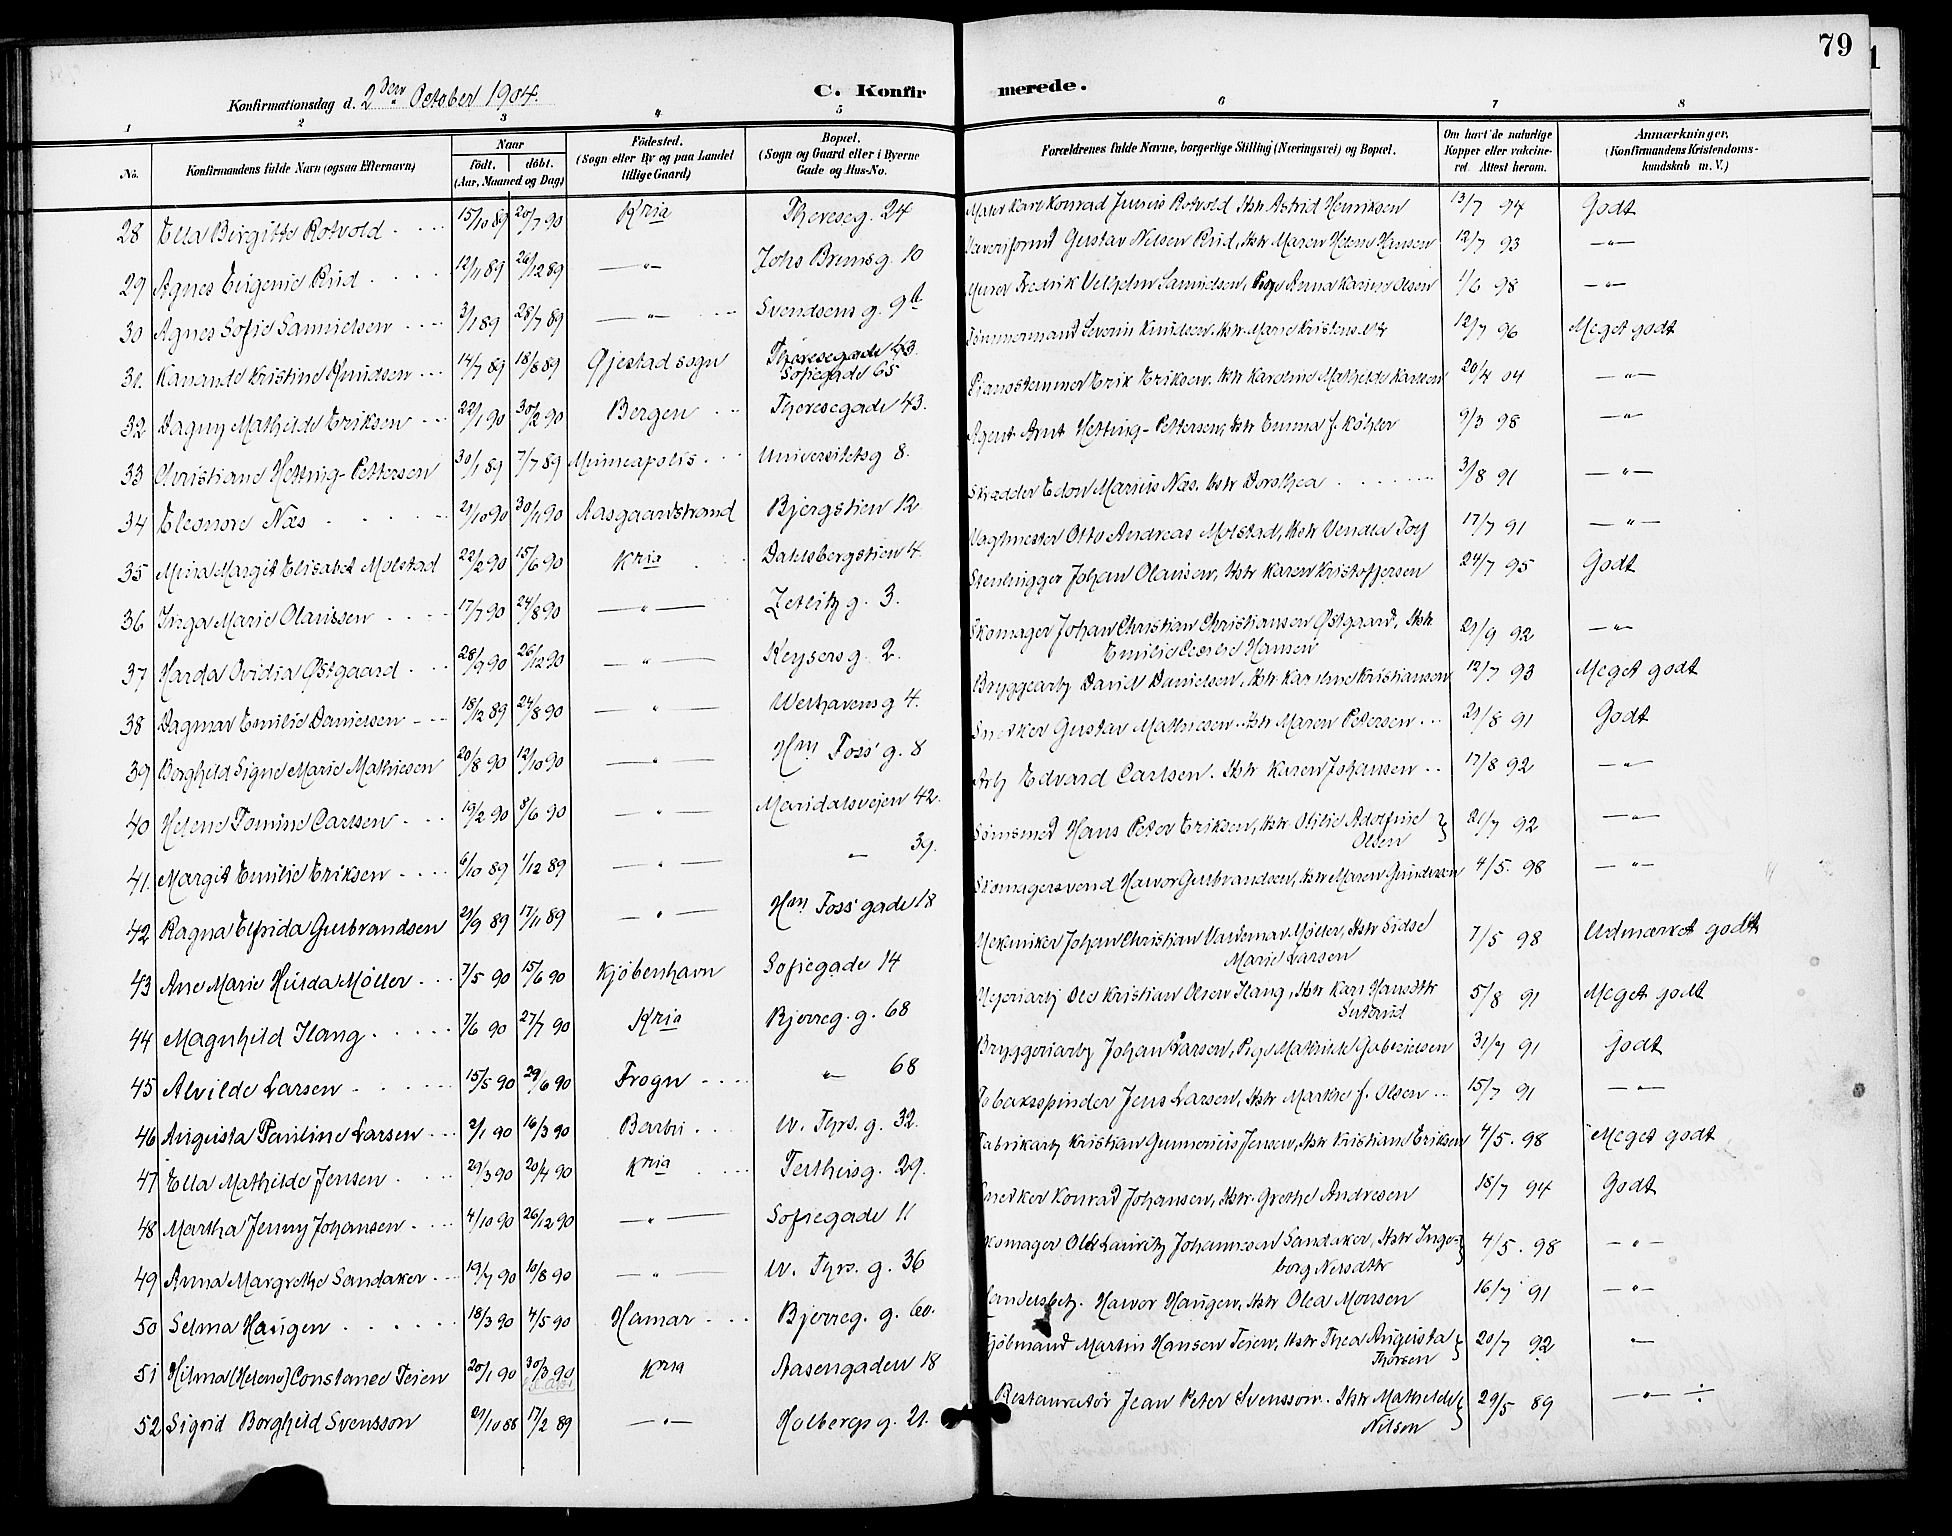 79
Konfirmationsdag d. 2den October 1904.
C. Konfirmerede.
1 2 3 4 5 6 7 8
No.
Konfirmandens fulde Navn (ogsaa Efternavn)
Naar
födt. döbt.
(Aar, Maaned og Dag)
Födested.
(Sogn eller By og paa Landet
tillige Gaard)
Bopæl.
(Sogn og Gaard eller i Byerne
Gade og Hus-No.
Forældrenes fulde Navne, borgerlige Stilling (Næringsvei) og Bopæl.
Om havt de naturlige
Kopper eller vakcine-
ret. Attest herom.
Anmærkninger,
(Konfirmandens Kristendoms-
kundskab m. V.)
28 Ella Birgitte Rotvold 15/10 89 20/7 90 Kria Thereseg. 24 Maler Karl Konrad Julius Rotvold Hstr Astrid Henriksen 13/7 94 Godt
29 Agnes Eugenie Rud 12/11 89 26/12 89 —"— Johs Brunsg. 10 Gustav Nilsen Rud, Hstr Maren Helene Hansen 12/7 93 —"—
30 Agnes Sofie Samuelsen 3/1 89 28/7 89 —"— Svendsens g. 9b Murer Fredrik Vilhelm Samuelsen, Pige Anna Karine Olsen 1/6 98 —"—
31. Kanande Kristine Knudsen 14/7 89 18/8 89 Øjestad sogn Theresegade 43. Sofiegade 65 Tömmermand Severin Knudsen. Hstr Marie Kristens.dtr 12/7 96 Meget godt
32 Dagny Mathilde Eriksen 22/1 90 30/2 90 Bergen Theresegade 43. Pianostemmer Erik Eriksen. Hstr Karoline Mathilde Karlsen 20/4 04 —"—
33 Christiane Hetting-Pettersen 30/1 89 7/7 89 Minneapolis Universitetsg 8. Agent Arnt Hetting-Pettersen, Hstr Emma J. Köhler 9/3 98 —"—
34 Eleonore Næs 2/10 90 30/11 90 Aasgaardstrand Bjergstien 12 Skrædder Edon Marius Næs. Hstr Dorothea 3/8 91 —"—
35 Mina Margit Elisabet Molstad 22/2 90 15/6 90 Kria Dahlsbergstien 4. Vagtmester Otto Andreas Molstad, Hstr Vendla Torp 17/7 91 —"—
36 Inga Marie Olaussen 17/7 90 24/8 90 —"— Zetlitz g. 3. Stenhugger Johan Olaussen, Hstr Karen Kristoffersen 24/7 95 Godt
37 Harda Ovidia Østgaard 28/9 90 26/12 90 —"— Keysersg. 2. Skomager Johan Christian Christiansen Østgaard, Hstr
Emilie Cecilie Hansen 29/9 92 —"—
38 Dagmar Emilie Danielsen 18/12 89 24/8 90 —"— Welhavensg 4. Bryggearb. David Danielsen, Hstr Karoline Kristiansen 12/7 93 Meget godt
39 Borghild Signe Marie Mathiesen 20/8 90 12/10 90 —"— Hm Foss' g. 8 Snedker Gustav Mathiesen. Hstr Maren Petersen 29/8 91 Godt
40 Helene Tomine Carlsen 19/2 90 8/6 90 —"— Maridalsvejen 42. Arb. Edvard Carlsen. Hstr Karen Johansen 17/8 92 —"—
41. Margit Emilie Eriksen 6/10 89 1/12 89 —"— — 39. Sömsmed Hans Peter Eriksen, Hstr Otilie Adolfine
Olsen 21/7 92 —"—
42 Ragna Elfrida Gulbrandsen 29/9 89 17/11 89 —"— Hm Foss' gade 18 Skomagersvend Halvor Gulbrandsen, Hstr Maren Gundersen 4/5. 98 —"—
43 Ane Marie Hulda Møller 7/5 90 15/6 90 Kjöbenhavn Sofiegade 14 Mekaniker Johan Christian Valdemar Möller, Hstr Sidse
Marie Larsen 7/5 98 Udmærket godt
44 Magnhild Ilang 7/6 90 27/7 90 Kria Bjerreg. g. 68 Mejeriarb. Ole Kristian Olsen Ilang, Hstr Kari Hansdtr 5/8 91 Meget godt
45 Alvilde Larsen 15/5 90 29/6 90 Frogn —"— 68 Bryggeriarb. Johan Larsen, Pige Mathilde Gabrielsen 31/7 91 Godt
46 Augusta Pauline Larsen 2/1 90 16/3 90 Barbu W. Thrs. g. 32. Tobaksspinder Jens Larsen, Hstr Marthe J. Olsen 15/7 91 —"—
47 Ella Mathilde Jensen 29/3 90 20/4 90 Kria Teltheisg. 29. Fabrikarb. Kristian Gunnerius Jensen, Hstr Kristiane Eriksen 4/5. 98 Meget godt
48 Martha Jenny Johansen 4/10 90 26/12 90 —"— Sofiegade 11 Snedker Konrad Johansen, Hstr. Grethe Andresen 18/7 94 Godt
49 Anna Margrethe Sandaker 19/7 90 10/8 90 —"— W. Thrs. g. 36 Skomager Ole Lauritz Johannesen Sandaker, Hstr Inge-
borg Nilsdtr 4/5. 98 —"—
50 Selma Haugen 18/3 90 4/5 90 Hamar Bjerreg. g. 60. Handelsbetj. Halvor Haugen, Hstr Olea Monsen 16/7 91 —"—
51 Hilma (Helene) Constance Teien 20/1 90 30/3 90 Kria Aasengaden 18 Kjöbmand Martin Hansen Teien, Hstr Thea Augusta
Thorsen 20/7 92 "—
52 Sigrid Borghild Svensson 29/10 88 17/2 89 —"— Holbergs g. 21. Restauratør Jean Peter Svensson. Hstr Mathilde
Nilsen 29/5 89 —"— ÷